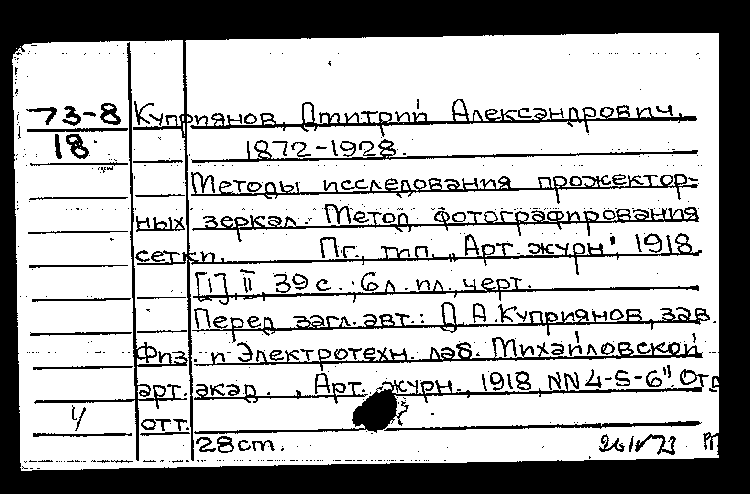 73-8 Куприянов, Дмитрий Александрович,
18 1872-1928.
Методы исследования прожектор-
ных зеркал. Метод фотографирования
сетки. Пг., тип. „Арт. журн", 1918.
[1], II, 39 с.; 6 л. пл., черт.
Перед загл. авт.: Д. А. Куприянов, зав.
Физ. и Электротехн. лаб. Михайловской
арт. акад. „Арт. журн., 1918, NN 4-5-6" Отд
отт.
28 cm.